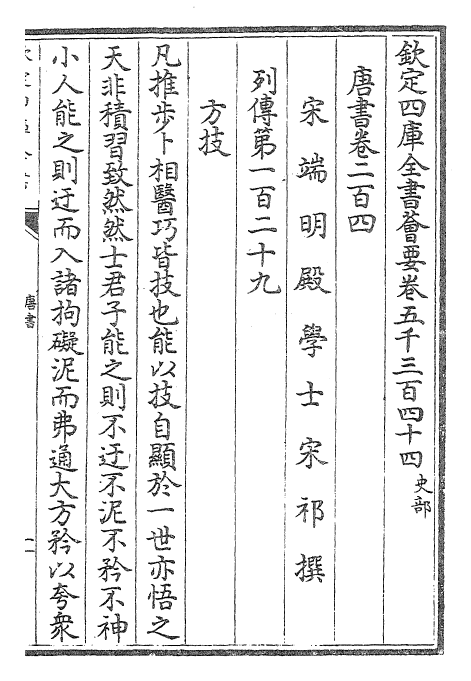 欽定四庫全書薈要卷五千三百四十四史部
唐書卷二百四
宋端明殿學士宋祁撰
列傳第一百二十九
方技
凡推步卜相醫巧皆技也能以技自顯於一世亦悟之
天非積習致然然士君子能之則不迂不泥不矜不神
小人能之則迂而入諸拘礙泥而弗通大方矜以夸衆
唐書